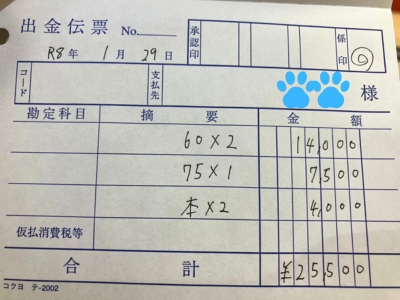 出金伝票 No.
承認印
係印
R8年 1月 29日
コード
支払先
様
勘定科目 摘要 金額
60×2 14,000
75×1 7,500
本×2 4,000
仮払消費税等
合計 ¥25,500
コクヨ テ-2002